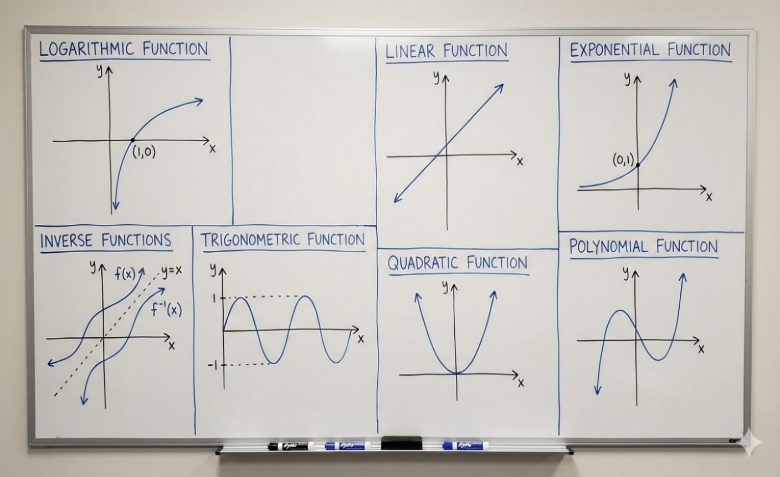 LOGARITHMIC FUNCTION
y
x
(1,0)
LINEAR FUNCTION
y
x
EXPONENTIAL FUNCTION
y
(0,1)
x
INVERSE FUNCTIONS
y
f(x)
y=x
f⁻¹(x)
x
TRIGONOMETRIC FUNCTION
y
1
-1
x
QUADRATIC FUNCTION
y
x
POLYNOMIAL FUNCTION
y
x